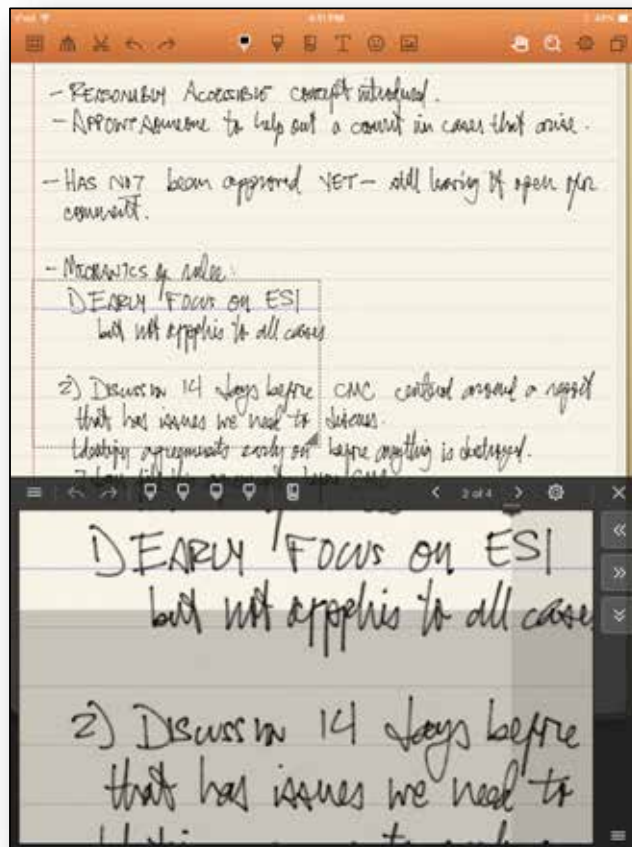 iPad
4:11 PM
48%
T
- REASONABLY ACCESSIBLE concept introduced.
- APPOINT someone to help out a court in cases that arise.
- HAS NOT been approved YET - still having it open for
comment.
- MECHANICS of rules:
1) EARLY FOCUS ON ESI
but not applies to all cases
2) DISCUSSION 14 days before CMC centered around a report
that has issues we need to discuss.
Identify agreements early on before anything is destroyed.
2 of 4
1) EARLY FOCUS ON ESI
but not applies to all cases
2) DISCUSSION 14 days before
that has issues we need to